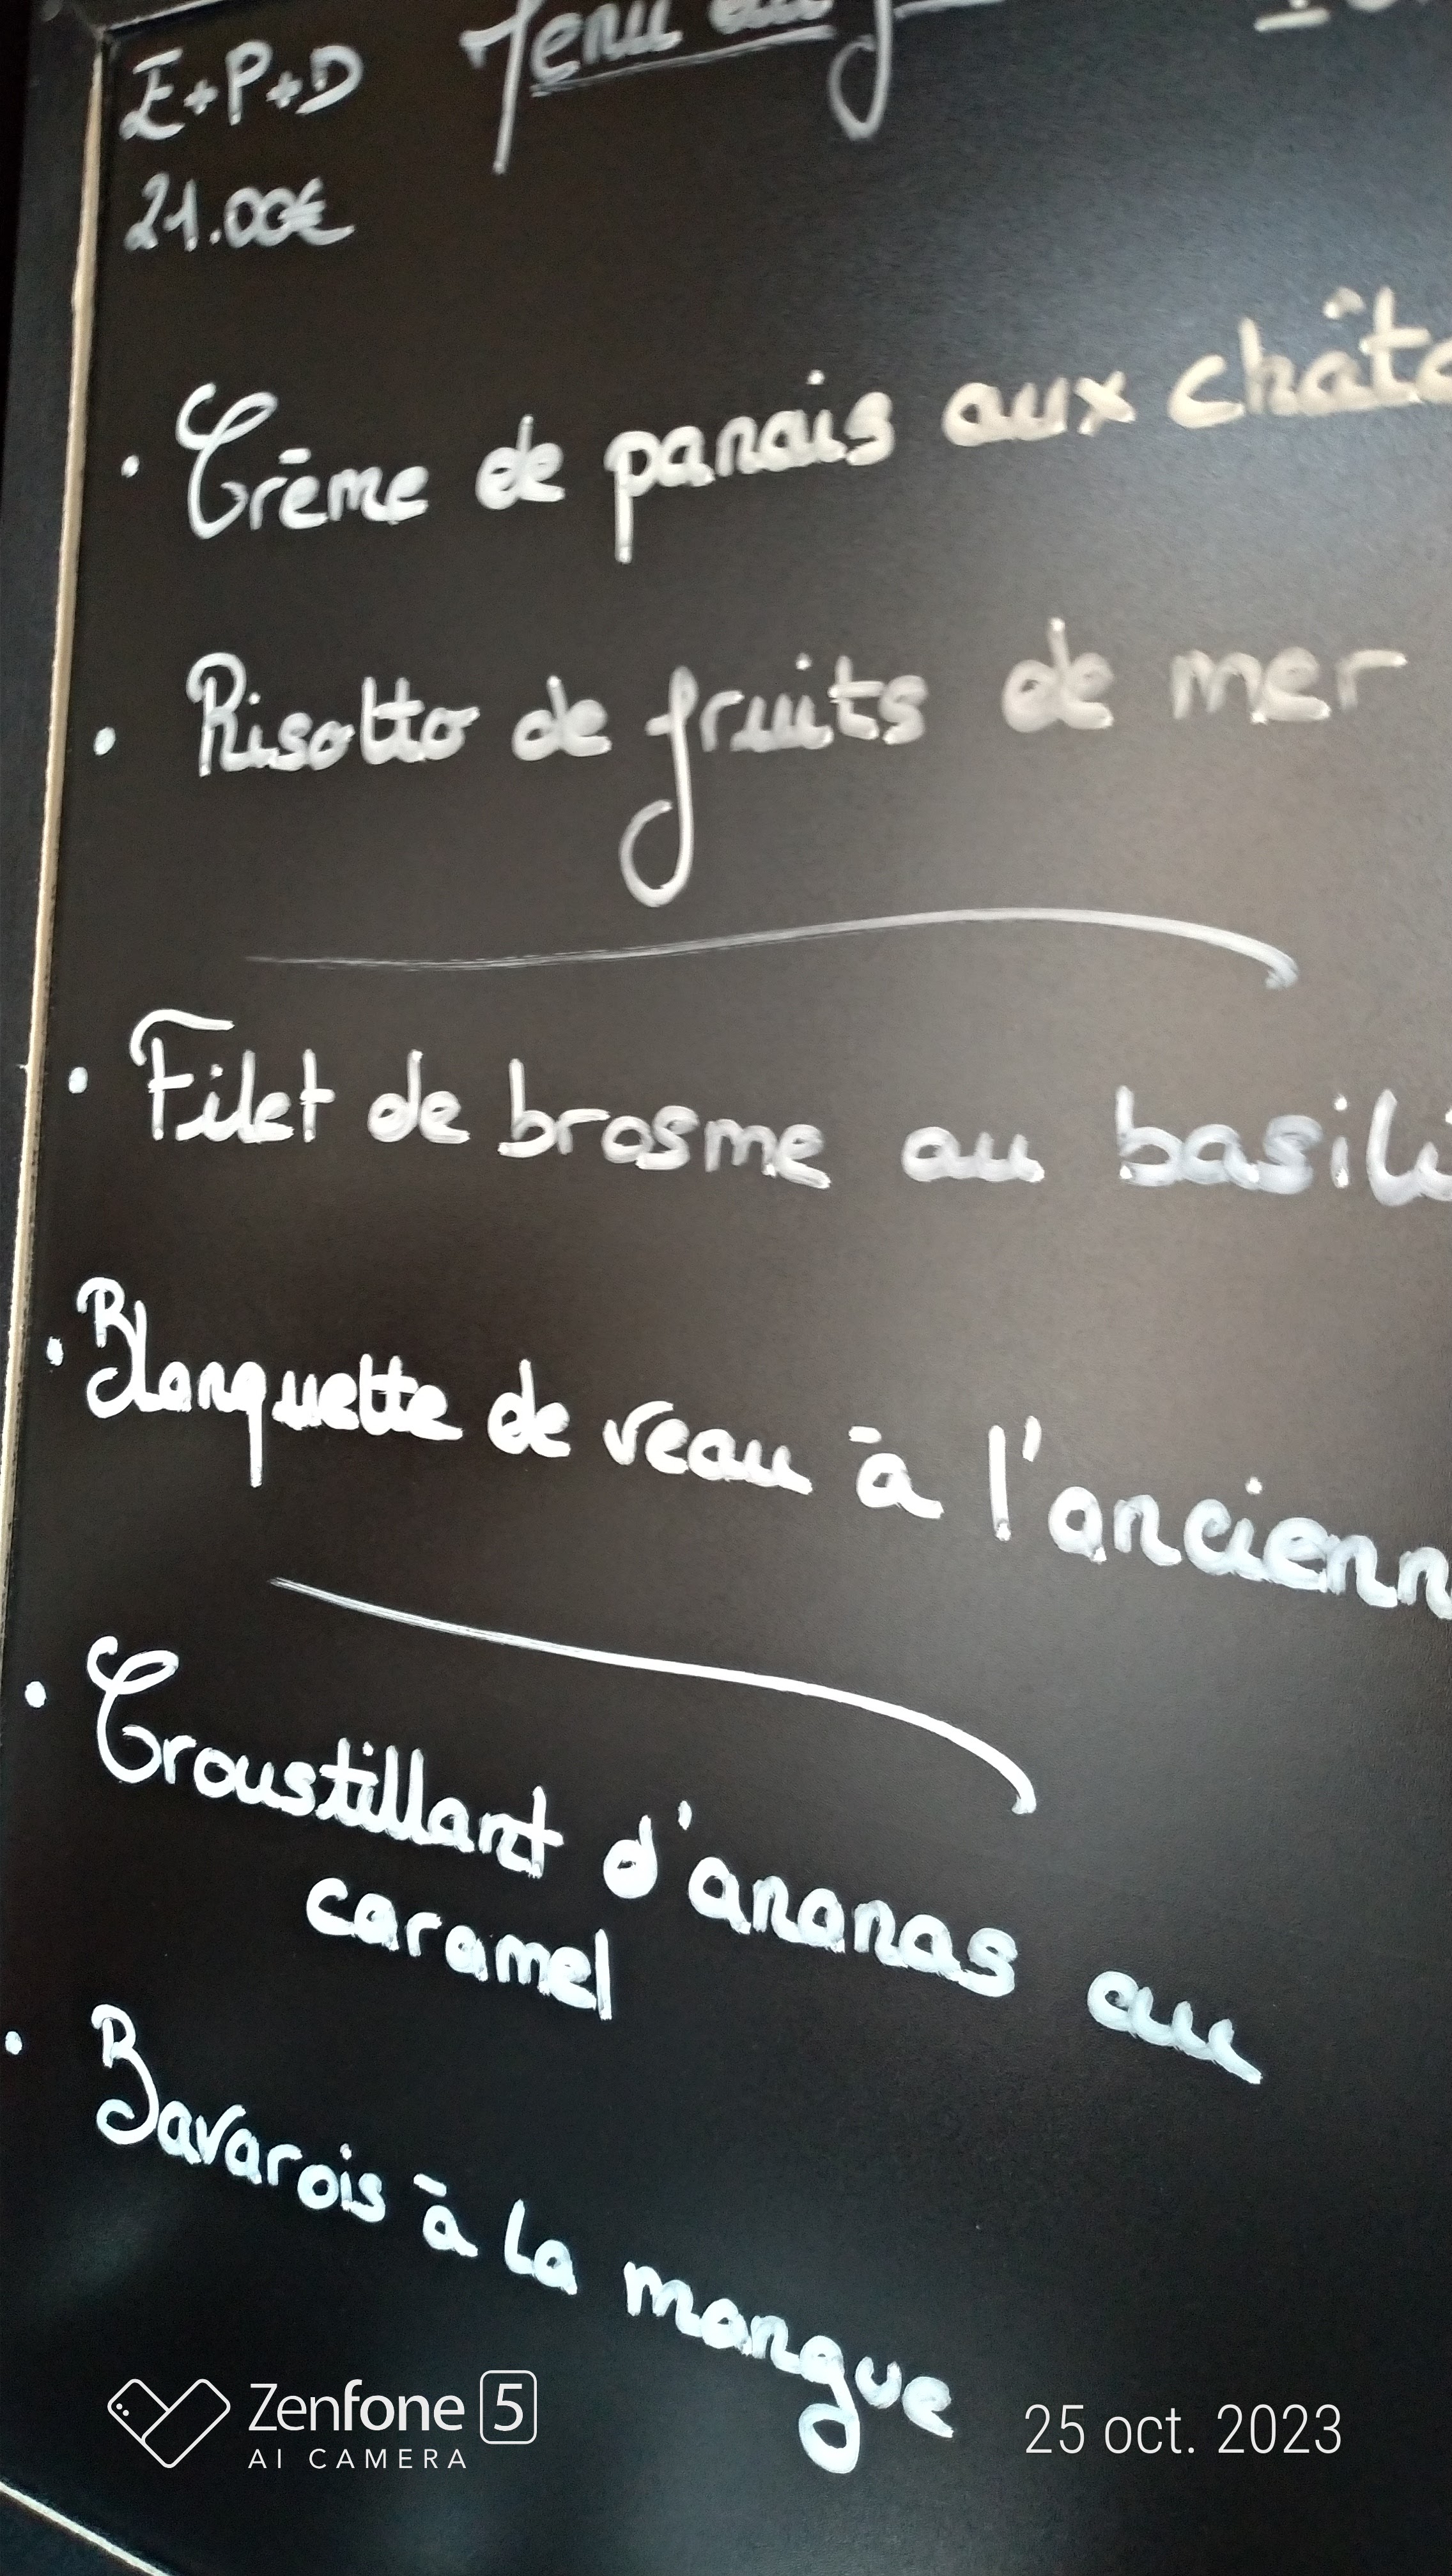 E+P+D
Menu du
21.00€
• Crème de panais aux châta
• Risotto de fruits de mer
• Filet de brosme au basili
• Blanquette de veau à l'ancienn
• Croustillant d'ananas au
caramel
• Bavarois à la mangue
Zenfone 5
AI CAMERA
25 oct. 2023